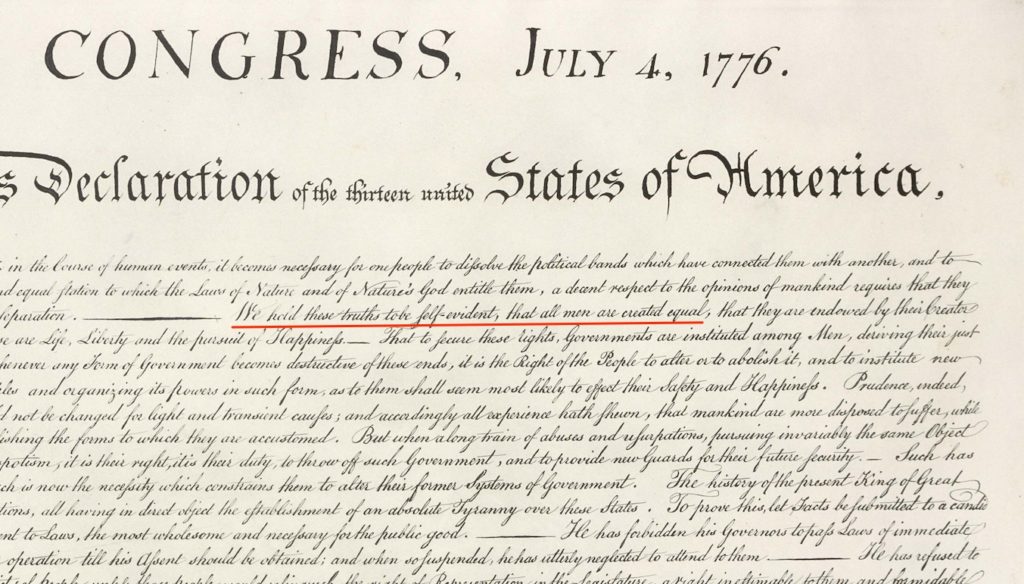 CONGRESS, JULY 4, 1776.
s Declaration of the thirteen united States of America,
in the Course of human events, it becomes necessary for one people to dissolve the political bands which have connected them with another, and to
equal station to which the Laws of Nature and of Nature's God entitle them, a decent respect to the opinions of mankind requires that they
separation. ——— We hold these truths to be self-evident, that all men are created equal, that they are endowed by their Creator
se are Life, Liberty and the pursuit of Happiness.— That to secure these rights, Governments are instituted among Men, deriving their just
henever any Form of Government becomes destructive of these ends, it is the Right of the People to alter or to abolish it, and to institute new
les and organizing its powers in such form, as to them shall seem most likely to effect their Safety and Happiness. Prudence, indeed,
d not be changed for light and transient causes; and accordingly all experience hath shewn, that mankind are more disposed to suffer, while
lishing the forms to which they are accustomed. But when a long train of abuses and usurpations, pursuing invariably the same Object
potism, it is their right, it is their duty, to throw off such Government, and to provide new Guards for their future security.— Such has
ch is now the necessity which constrains them to alter their former Systems of Government. The history of the present King of Great
tions, all having in direct object the establishment of an absolute Tyranny over these States. To prove this, let Facts be submitted to a candid
ent to Laws, the most wholesome and necessary for the public good. ——— He has forbidden his Governors to pass Laws of immediate
operation till his Assent should be obtained; and when so suspended, he has utterly neglected to attend to them. ——— He has refused to
of People, unless those people would relinquish the right of Representation in the Legislature, a right inestimable to them, and formidable